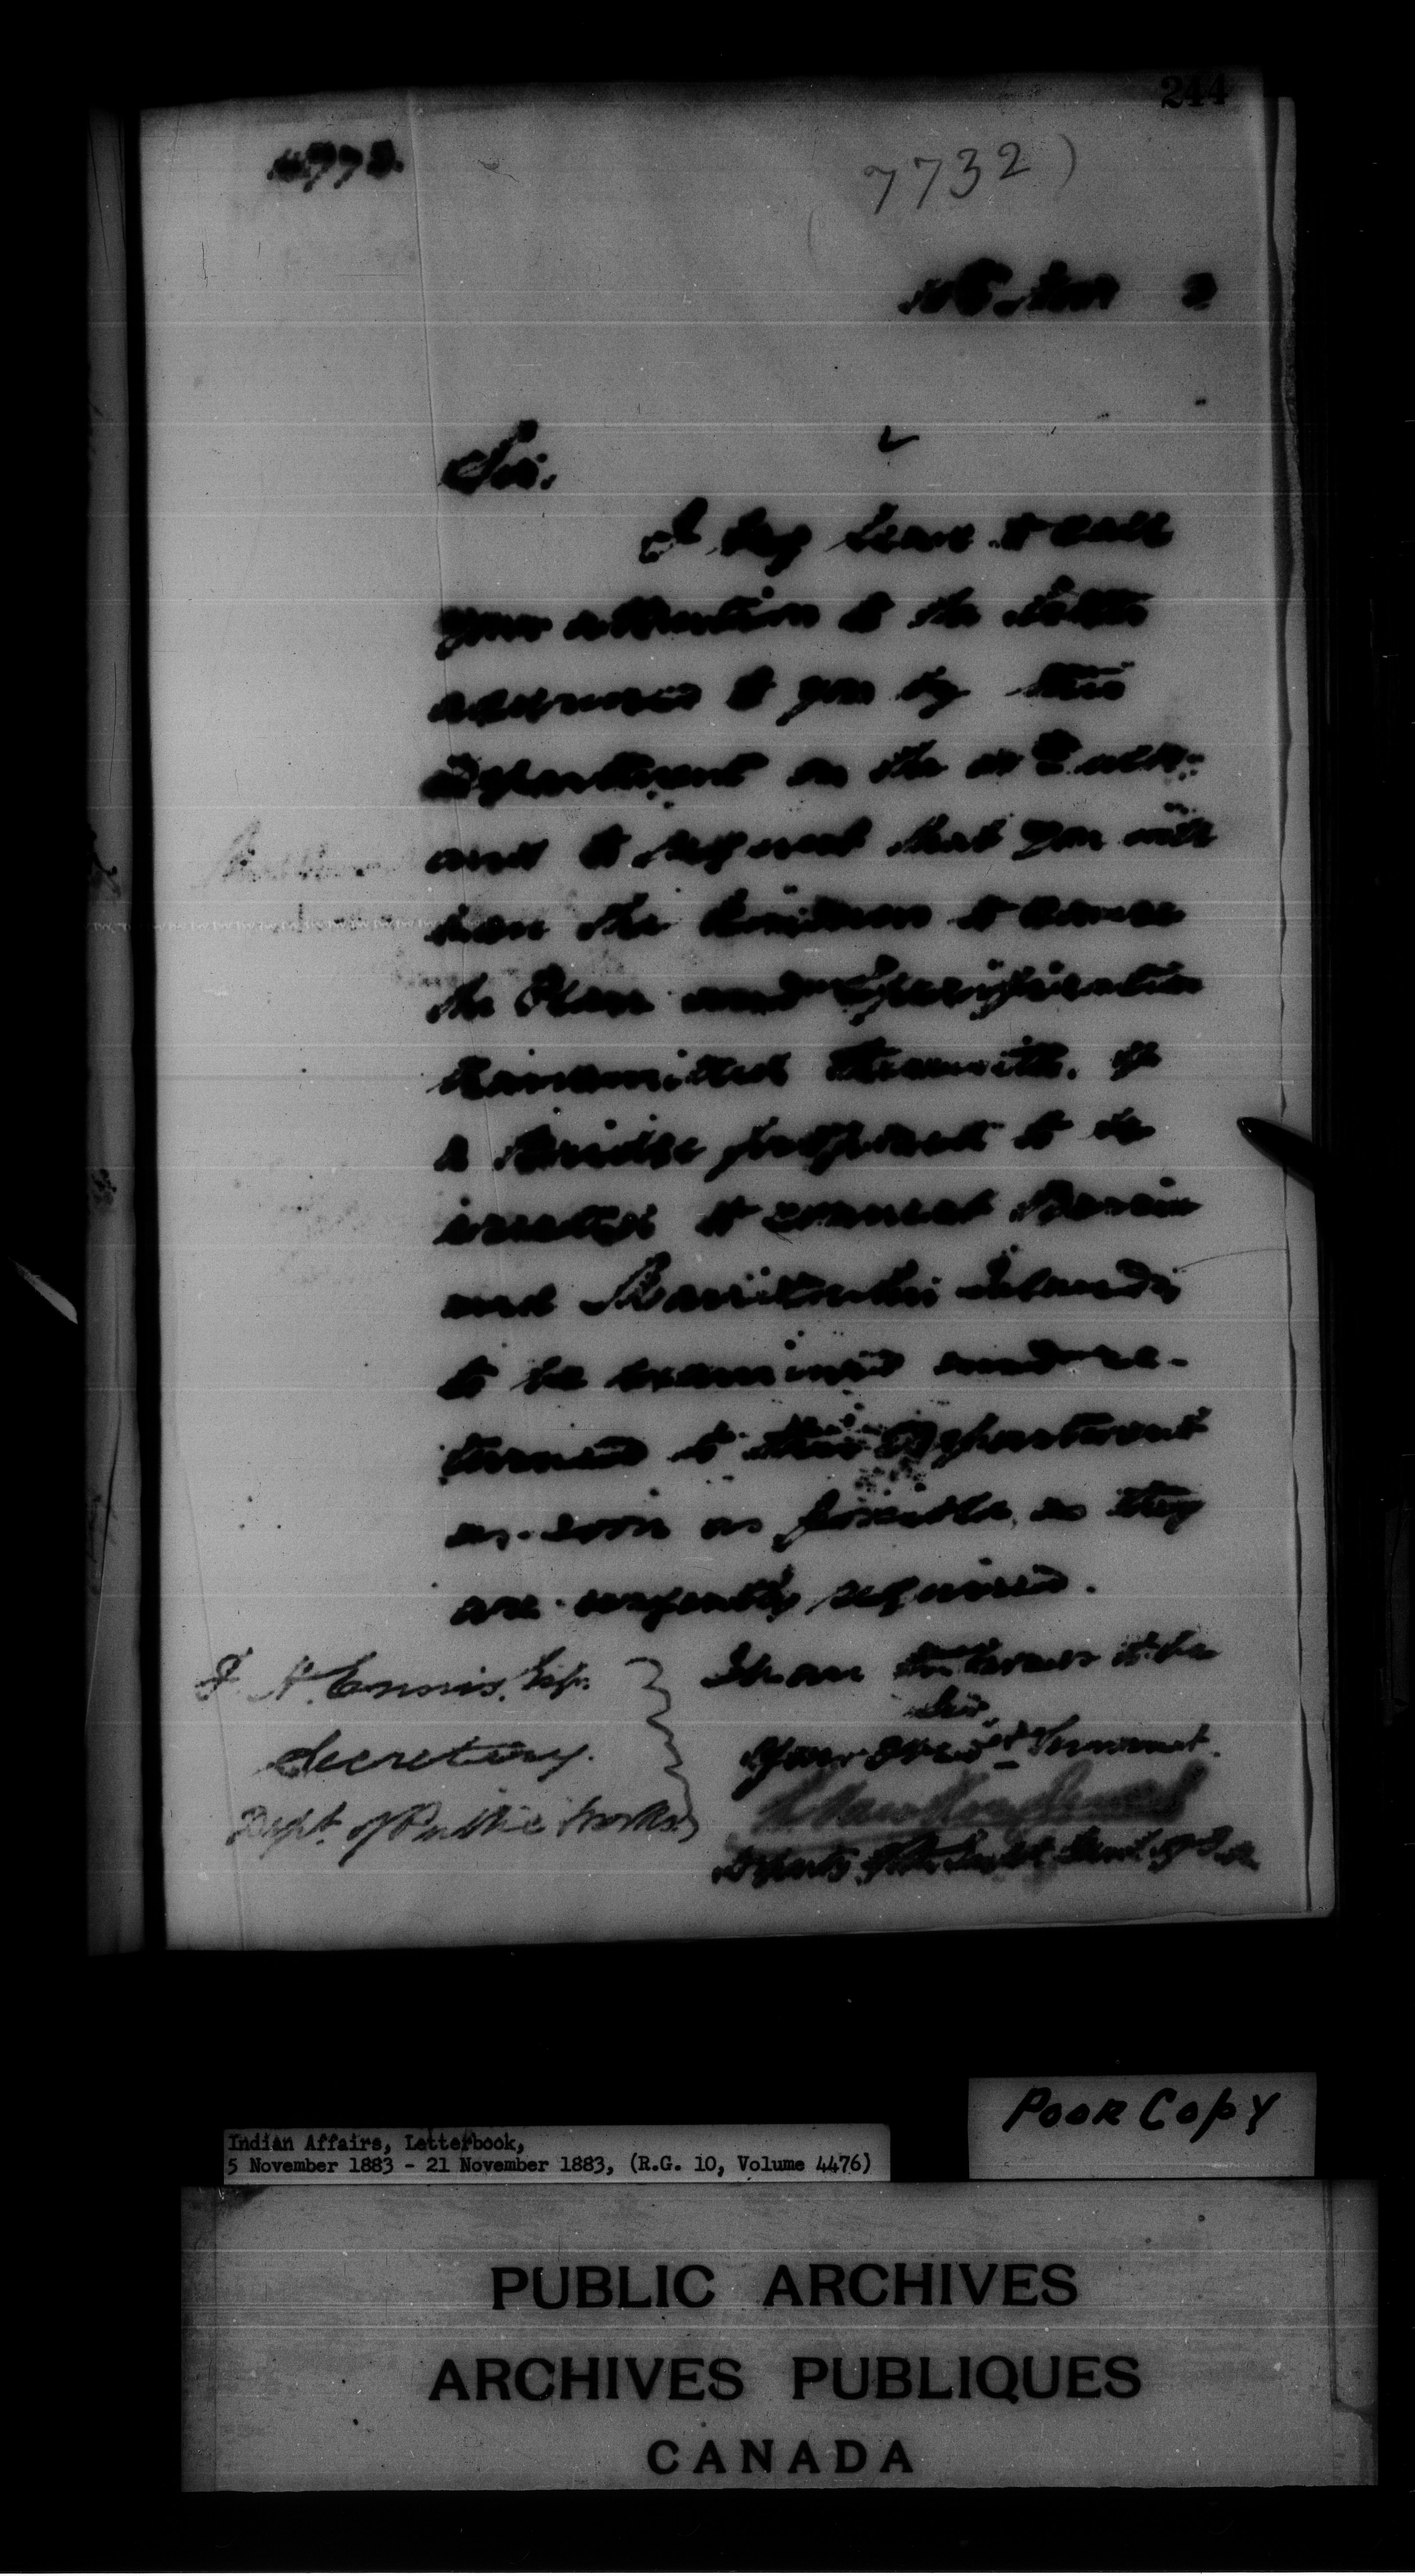 244
7732)
Nov 3
Sir.
I beg leave to call
your attention to the letter
addressed to you by this
Department on the ulto:
and to request that you will
have the kindness to cause
the Plan and Specification
transmitted therewith, of
a Bridge proposed to be
erected to connect
and Manitoulin Islands,
to be examined and re-
turned to this Department
as soon as possible, as they
are urgently required.
I have the honor to be
Sir,
Your Obed Servant.
Deputy of the Supt. Genl. of I. A.
F. H. Ennis, Esq.
Secretary.
Dept. of Public Works
Poor Copy
Indian Affairs, Letterbook,
5 November 1883 - 21 November 1883, (R.G. 10, Volume 4476)
PUBLIC ARCHIVES
ARCHIVES PUBLIQUES
CANADA